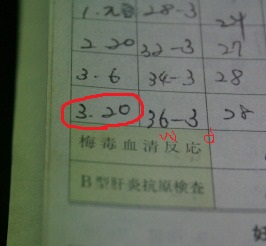 28-3 24
2.20 32-3 27
3-6 34-3 28
3.20 36-3 28
W D
梅毒血清反応
B型肝炎抗原検査